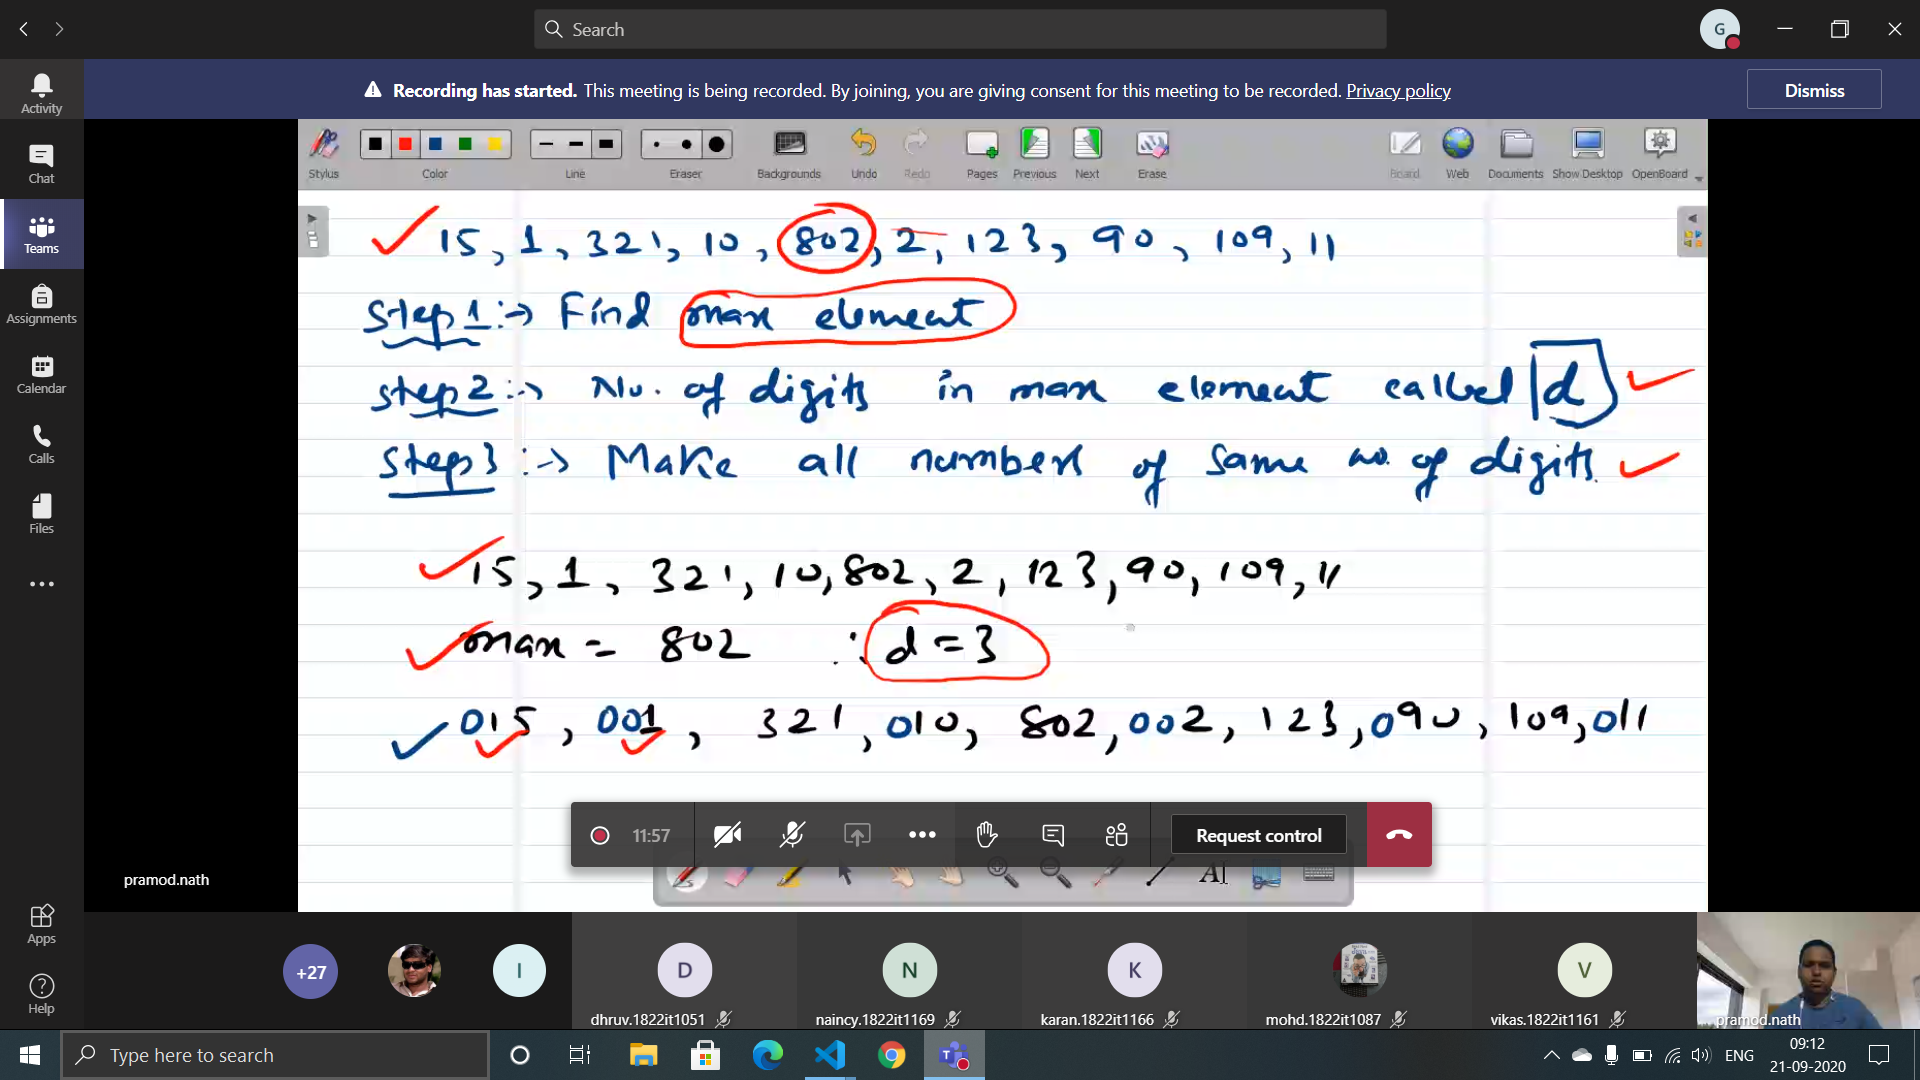 Search
G
Activity
Chat
Teams
Assignments
Calendar
Calls
Files
Apps
Help
Recording has started. This meeting is being recorded. By joining, you are giving consent for this meeting to be recorded. Privacy policy
Dismiss
Stylus Color Line Eraser Backgrounds Undo Redo Pages Previous Next Erase Board Web Documents Show Desktop OpenBoard
15, 1, 321, 10, 802, 2, 123, 90, 109, 11
Step 1 :→ Find max element
step 2 :→ No. of digits in max element called d
step 3 :→ Make all numbers of same no. of digits.
15, 1, 321, 10, 802, 2, 123, 90, 109, 11
max = 802 ∴ d = 3
015, 001, 321, 010, 802, 002, 123, 090, 109, 011
11:57
Request control
pramod.nath
+27 I D N K V
dhruv.1822it1051 naincy.1822it1169 karan.1822it1166 mohd.1822it1087 vikas.1822it1161 pramod.nath
Type here to search
ENG
09:12
21-09-2020